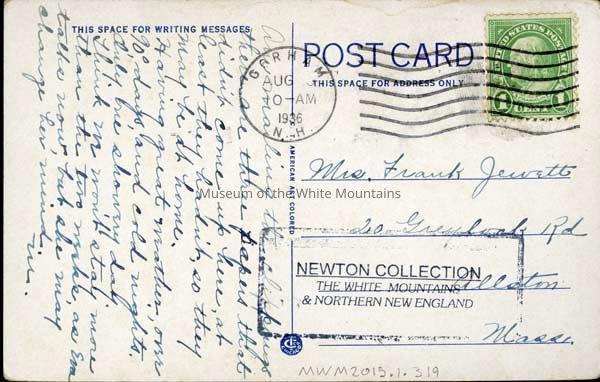 THIS SPACE FOR WRITING MESSAGES
the clippings
there are those that
didn't come up here, at
least they hadn't, so they
may be at home.
Having great weather, over
80 days, and cold nights.
Only one showery day.
I think we won't stay more
than the two weeks, as
talks now, but she may
change her mind.
POST CARD
THIS SPACE FOR ADDRESS ONLY
GORHAM
AUG
10-AM
1936
N.H.
UNITED STATES POSTAGE
1 1
AMERICAN ART COLORED
Mrs. Frank Jewett
20 Greylock Rd
Allston
Mass.
Museum of the White Mountains
NEWTON COLLECTION
THE WHITE MOUNTAINS
& NORTHERN NEW ENGLAND
MWM2013.1.319